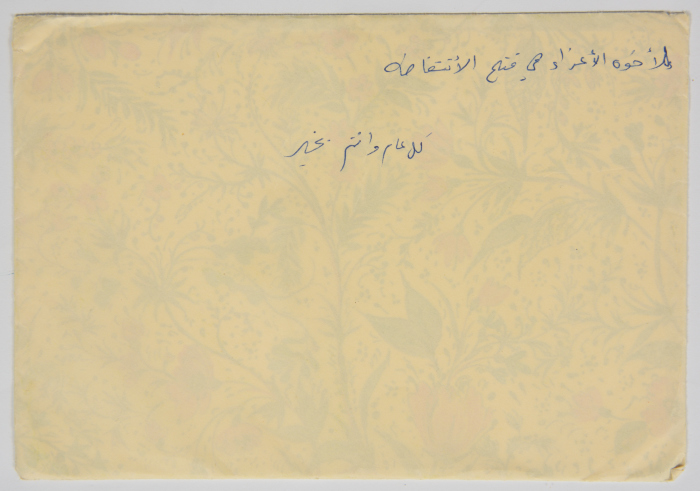 للأخوه الأعزاء في فتح الأنتفاضه
كل عام وانتم بخير